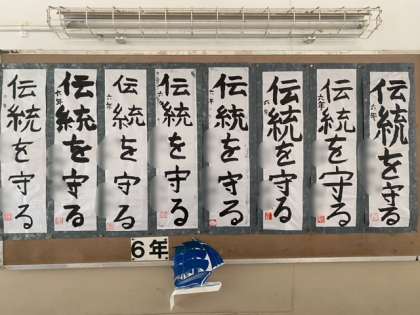 伝統を守る
六年
伝統を守る
六年
伝統を守る
六年
伝統を守る
六年
伝統を守る
六年
伝統を守る
六年
伝統を守る
六年
伝統を守る
六年
6年